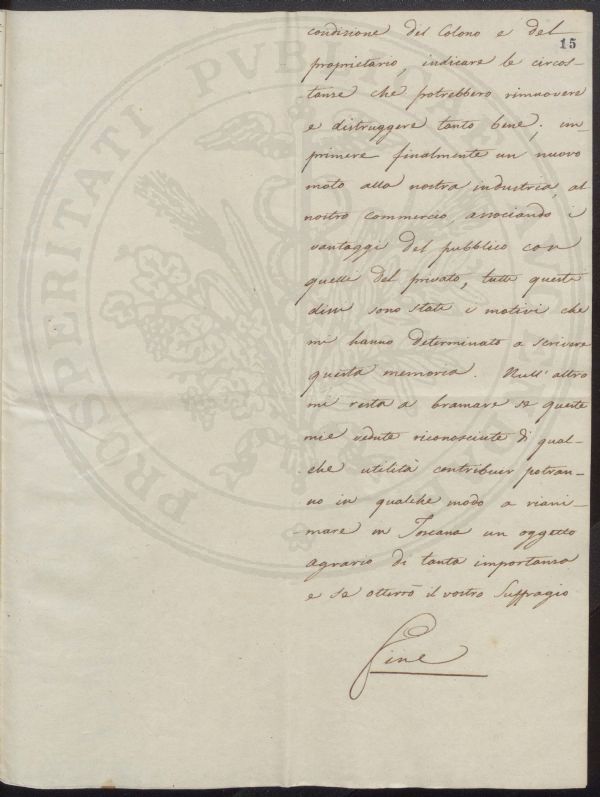 condizione del Colono e del
15
proprietario, indicare le circos-
tanze che potrebbero rimuovere
e distruggere tanto bene; im-
primere finalmente un nuovo
moto alla nostra industria, al
nostro commercio, associando i
vantaggi del pubblico con
quelli del privato, tutte queste
dissi sono state i motivi che
mi hanno determinato a scrivere
questa memoria. Null' altro
mi resta a bramare se queste
mie vedute riconosciute di qual-
che utilità contribuir potran-
no in qualche modo a riani-
mare in Toscana un oggetto
agrario di tanta importanza
e se otterrò il vostro Suffragio
Fine
PROSPERITATI PVBLICAE AV